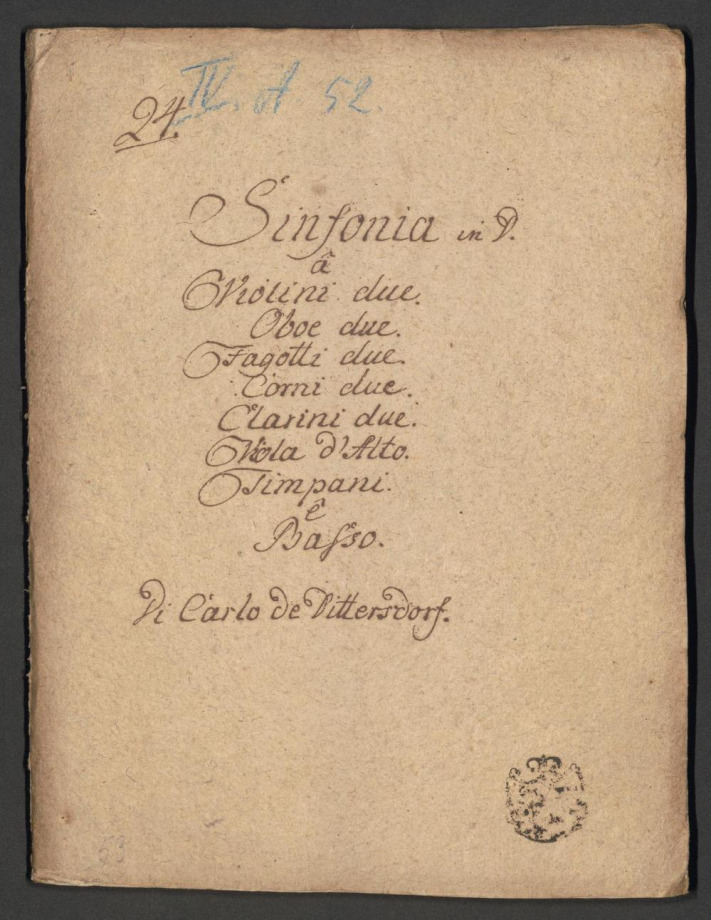 IV. A 52.
24.
Sinfonia in D.
â
Violini due.
Oboe due.
Fagotti due.
Corni due.
Clarini due.
Viola d'Alto.
Timpani.
e
Basso.
Di Carlo de Dittersdorf.
53